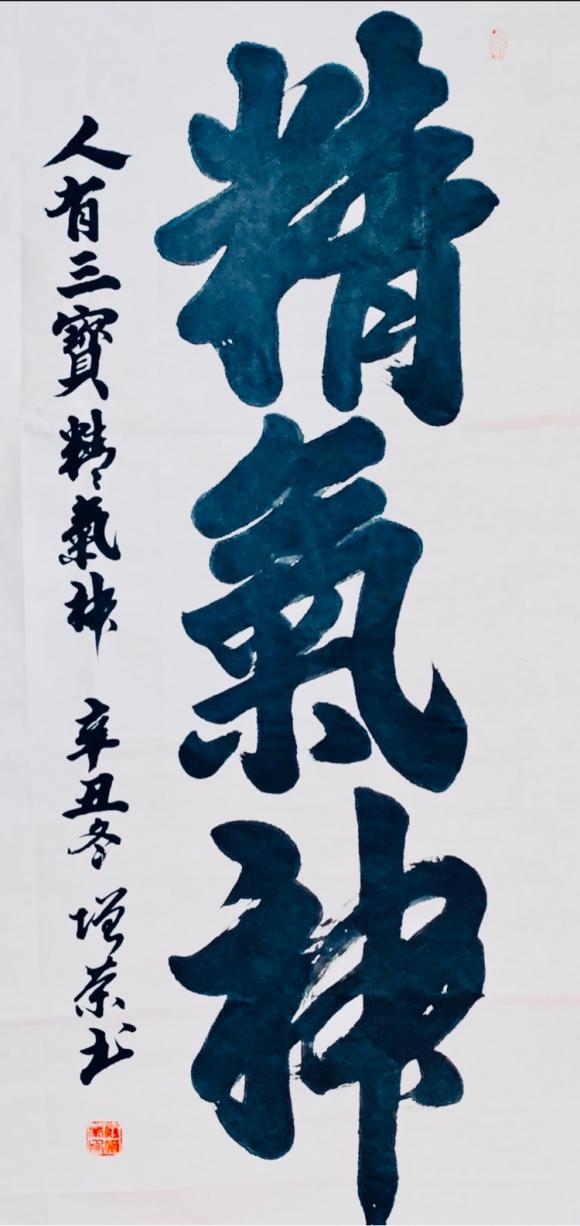 精氣神
人有三寶精氣神 辛丑冬 增荣书